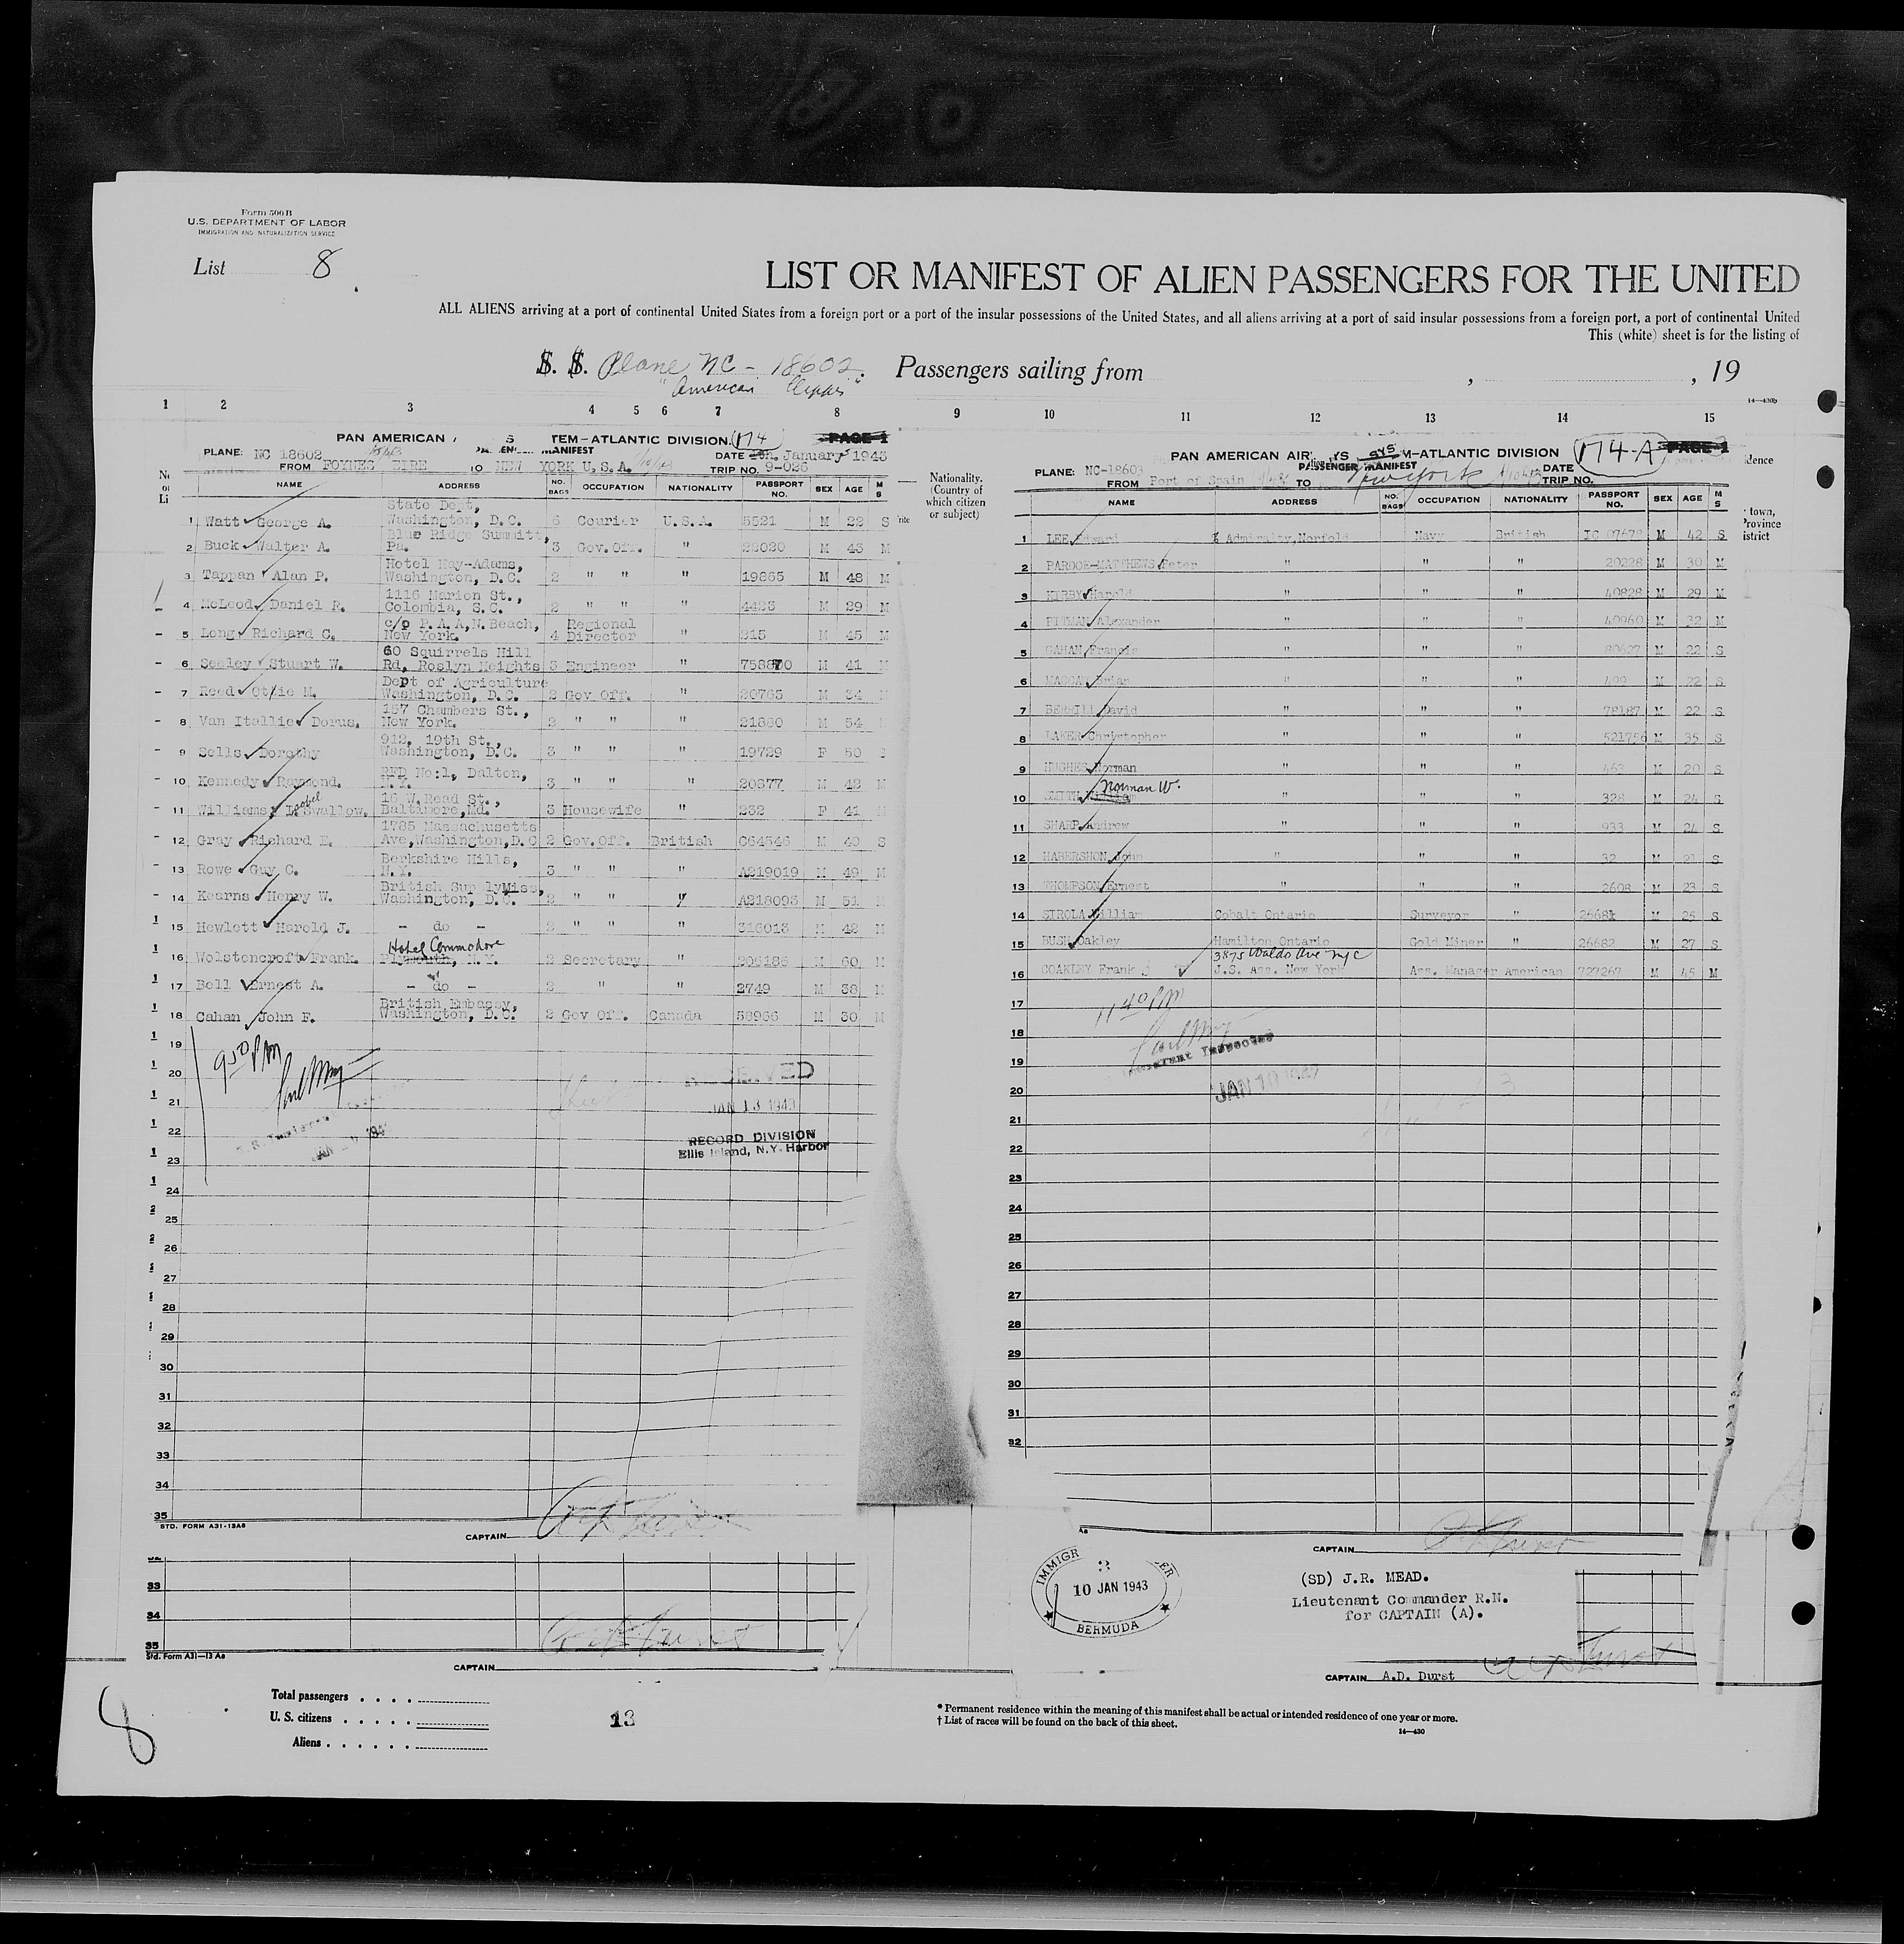 Form 500 B
U.S. DEPARTMENT OF LABOR
IMMIGRATION AND NATURALIZATION SERVICE
List 8
LIST OR MANIFEST OF ALIEN PASSENGERS FOR THE UNITED
ALL ALIENS arriving at a port of continental United States from a foreign port or a port of the insular possessions of the United States, and all aliens arriving at a port of said insular possessions from a foreign port, a port of continental United
This (white) sheet is for the listing of
S. S. Plane NC - 18602. Passengers sailing from , , 19
"American Clipper"
14—430b
1 2 3 4 5 6 7 8 9 10 11 12 13 14 15
PAN AMERICAN TEM-ATLANTIC DIVISION. 174 PAGE 1
PLANE: NC 18602 MANIFEST DATE January 1943
FROM FOYNES EIRE TO NEW YORK U.S.A. TRIP NO. 9-026
NAME ADDRESS NO. BAGS OCCUPATION NATIONALITY PASSPORT NO. SEX AGE M S
State Dept,
1 Watt George A. Washington, D.C. 6 Courier U.S.A. 5521 M 22 S
Blue Ridge Summitt,
2 Buck Walter A. Pa. 3 Gov.Off. " 22020 M 43 M
Hotel Hay-Adams,
3 Tappan Alan P. Washington, D.C. 2 " " " 19865 M 48 M
1116 Marion St.,
4 McLeod Daniel R. Colombia, S.C. 2 " " " 4423 M 29 M
c/o P.A.A,N.Beach, Regional
5 Long Richard C. New York. 4 Director " 215 M 45 M
60 Squirrels Hill
6 Seeley Stuart W. Rd, Roslyn Heights 3 Engineer " 758870 M 41 M
Dept of Agriculture
7 Reed Ottie M. Washington, D.C. 2 Gov Off. " 20765 M 34
157 Chambers St.,
8 Van Itallie Dorus. New York. 2 " " " 21880 M 54
912, 19th St.,
9 Sells Dorothy Washington, D.C. 3 " " " 19729 F 50
RFD No:1, Dalton,
10 Kennedy Raymond. N.Y. 3 " " " 20877 M 42 M
15 W.Read St.,
11 Williams Swallow. Baltimore,Md. 3 Housewife " 232 F 41
1785 Massachusetts
12 Gray Richard E. Ave,Washington,D.C 2 Gov.Off. British C64546 M 40 S
Berkshire Hills,
13 Rowe Guy C. N.Y. 3 " " " A219019 M 49 M
British SupplyMiss,
14 Kearns Henry W. Washington, D.C. 2 " " " A218093 M 51 M
15 Hewlett Harold J. - do - 2 " " " 316013 M 42 M
Hotel Commodore
16 Wolstencroft Frank. Plymouth, N.Y. 2 Secretary " 206186 M 60 M
17 Bell Ernest A. - do - 2 " " 2749 M 38 M
British Embassy,
18 Cahan John F. Washington, D.C. 2 Gov Off. Canada 58966 M 30 M
19
20
21
22
23
24
25
26
27
28
29
30
31
32
33
34
35
950 PM
RECEIVED
JAN 13 1943
RECORD DIVISION
Ellis Island, N.Y. Harbor
STD. FORM A31-13A8
CAPTAIN
33
34
35
Std. Form A31—13 A8
CAPTAIN
Nationality.
(Country of
which citizen
or subject)
PAN AMERICAN AIR YS SYS M-ATLANTIC DIVISION 174-A PAGE 1
PLANE: NC-18603 PASSENGER MANIFEST DATE
FROM Port of Spain TO New York TRIP NO.
NAME ADDRESS NO. BAGS OCCUPATION NATIONALITY PASSPORT NO. SEX AGE M S
1 LEE Edward Admiralty,Norfold Navy British M 42 S
2 PARDOE-MATTHEWS Peter " " " 20228 M 30 M
3 KIRBY Harold " " " 40828 M 29 M
4 PITMAN Alexander " " " 40960 M 32 M
5 GAHAN Francis " " " 80627 M 22 S
6 Brian " " " 499 M 22 S
7 BERRILL David " " " 78187 M 22 S
8 LAKER Christopher " " " 521756 M 35 S
9 HUGHES Norman " " " 463 M 20 S
Norman W.
10 SMITH William " " " 328 M 24 S
11 SHARP Andrew " " " 933 M 24 S
12 HABERSHON John " " " 32 M 21 S
13 THOMPSON Ernest " " " 2608 M 23 S
14 SIROLA William Cobalt Ontario Surveyor " 26681 M 25 S
15 BUSH Oakley Hamilton Ontario Gold Miner " 26682 M 27 S
3875 Waldo Ave NYC
16 COAKLEY Frank J J.S. Ass. New York Ass. Manager American 727267 M 45 M
17
18
19
20
21
22
23
24
25
26
27
28
29
30
31
32
1140 PM
JAN 10
CAPTAIN
IMMIGR ER
10 JAN 1943
BERMUDA
(SD) J.R. MEAD.
Lieutenant Commander R.N.
for CAPTAIN (A).
CAPTAIN A.D. Durst
8
Total passengers . . . .
U. S. citizens . . . . .
Aliens . . . . . .
13
* Permanent residence within the meaning of this manifest shall be actual or intended residence of one year or more.
† List of races will be found on the back of this sheet.
14—430